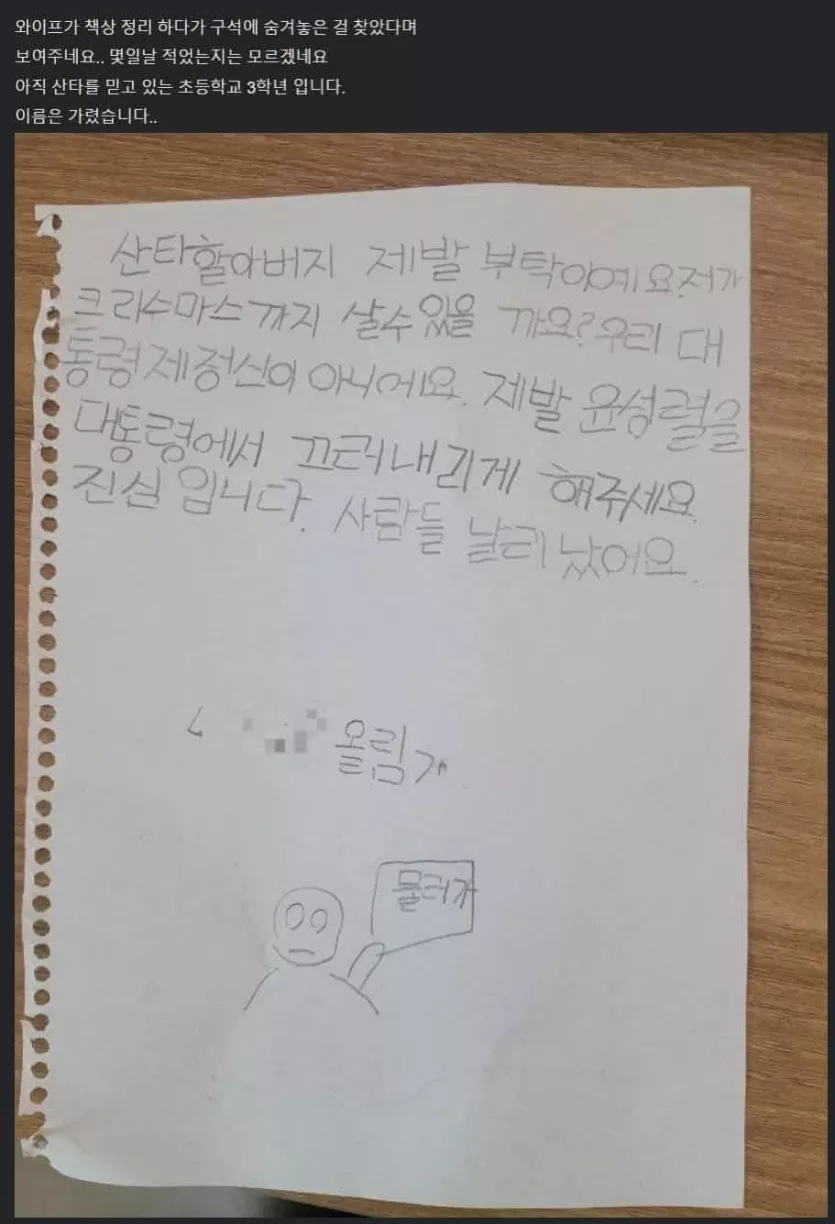 와이프가 책상 정리 하다가 구석에 숨겨놓은 걸 찾았다며
보여주네요.. 몇일날 적었는지는 모르겠네요
아직 산타를 믿고 있는 초등학교 3학년 입니다.
이름은 가렸습니다..
산타할아버지 제발 부탁이예요. 저가
크리스마스까지 살수있을 까요? 우리 대
통령제정신이 아니에요. 제발 윤성렬을
대통령에서 끄러내리게 해주세요
진심 입니다. 사람들 날리 났어요.
올림
물러가